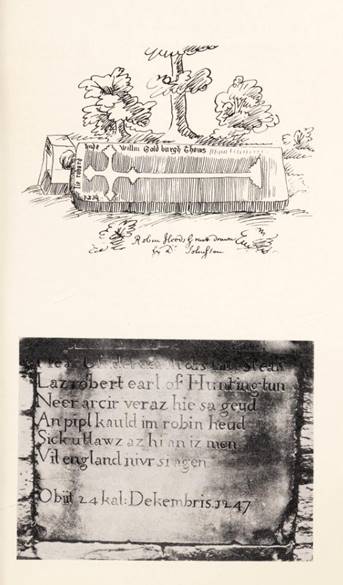 hude Willm Gold burgh Thoms
lie robard
Robin Hoods Grave drawn
by Dr Johnston
Laz robert earl of Huntingtun
Neer arcir veraz hie sa geud
An pipl kauld im robin heud
Sick utlawz az hi an iz men
Vil england nivr si agen
Obiit 24 kal: Dekembris.1247